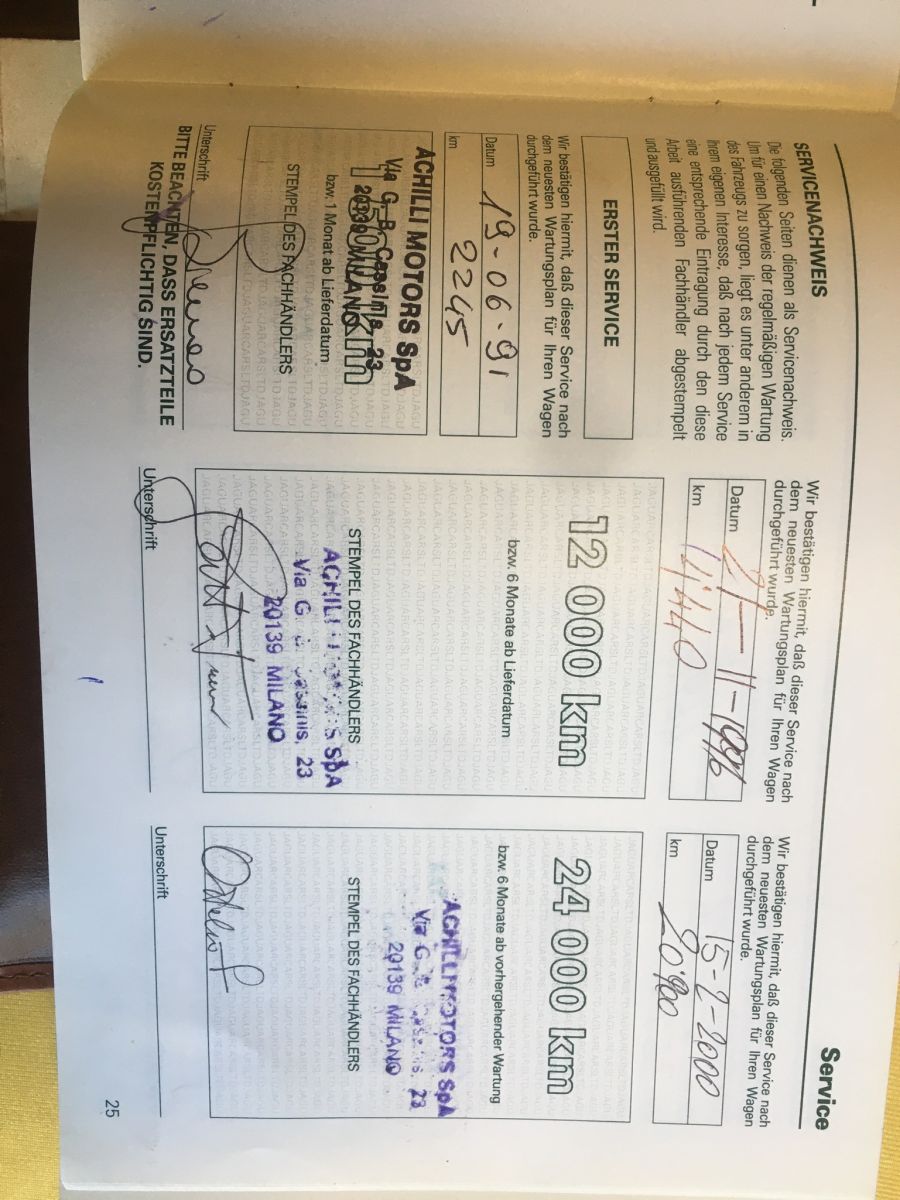 Service
SERVICENACHWEIS
Die folgenden Seiten dienen als Servicenachweis.
Um für einen Nachweis der regelmäßigen Wartung
des Fahrzeugs zu sorgen, liegt es unter anderem in
Ihrem eigenen Interesse, daß nach jedem Service
eine entsprechende Eintragung durch den diese
Arbeit ausführenden Fachhändler abgestempelt
und ausgefüllt wird.
ERSTER SERVICE
Wir bestätigen hiermit, daß dieser Service nach
dem neuesten Wartungsplan für Ihren Wagen
durchgeführt wurde.
Datum 19-06-91
km 2245
ACHILLI MOTORS SpA
Via G. B. Cassinis, 23
20139 MILANO
1 500 km
bzw. 1 Monat ab Lieferdatum
STEMPEL DES FACHHÄNDLERS
Unterschrift
BITTE BEACHTEN, DASS ERSATZTEILE
KOSTENPFLICHTIG SIND.
Wir bestätigen hiermit, daß dieser Service nach
dem neuesten Wartungsplan für Ihren Wagen
durchgeführt wurde.
Datum 21-11-1996
km 14'440
12 000 km
bzw. 6 Monate ab Lieferdatum
STEMPEL DES FACHHÄNDLERS
ACHILLI SpA
Via G. Cassinis, 23
20139 MILANO
Unterschrift
Wir bestätigen hiermit, daß dieser Service nach
dem neuesten Wartungsplan für Ihren Wagen
durchgeführt wurde.
Datum 15-2-2000
km 20'900
24 000 km
bzw. 6 Monate ab vorhergehender Wartung
ACHILLI MOTORS SpA
Via G. Cassinis, 23
20139 MILANO
STEMPEL DES FACHHÄNDLERS
Unterschrift
25